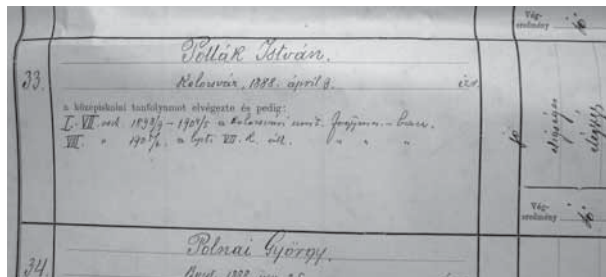 Vég-
eredmény jó
33.
Pollák István.
Kolozsvár, 1888. április 9. izr.
a középiskolai tanfolyamot elvégezte és pedig:
I. VII. 1898/9 – 1904/5 a kolozsvári unit. – ban.
VIII. " 1905/6. a bpti VII. k. áll. " " "
jó
elégséges
Vég-
eredmény jó
34.
Polnai György.